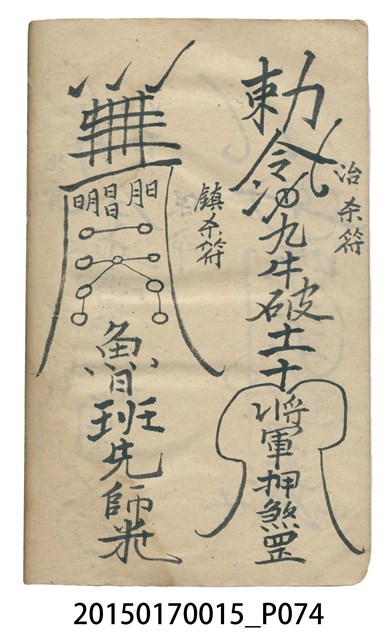 治杀符
勅令
九牛破土
十將軍押煞罡
鎮杀符
明晶朋
魯班先師
20150170015_P074